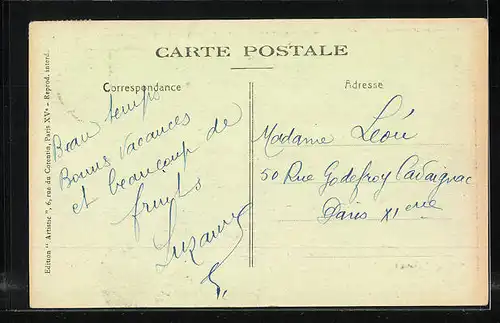 CARTE POSTALE
Correspondance
Beau temps
Bonnes vacances
et beaucoup de
fruits
Suzanne
Adresse
Madame Léon
50 Rue Godefroy Cavaignac
Paris XIeme
Edition " Artistic ", 6, rue du Corentin, Paris XVe - Reprod. interd.